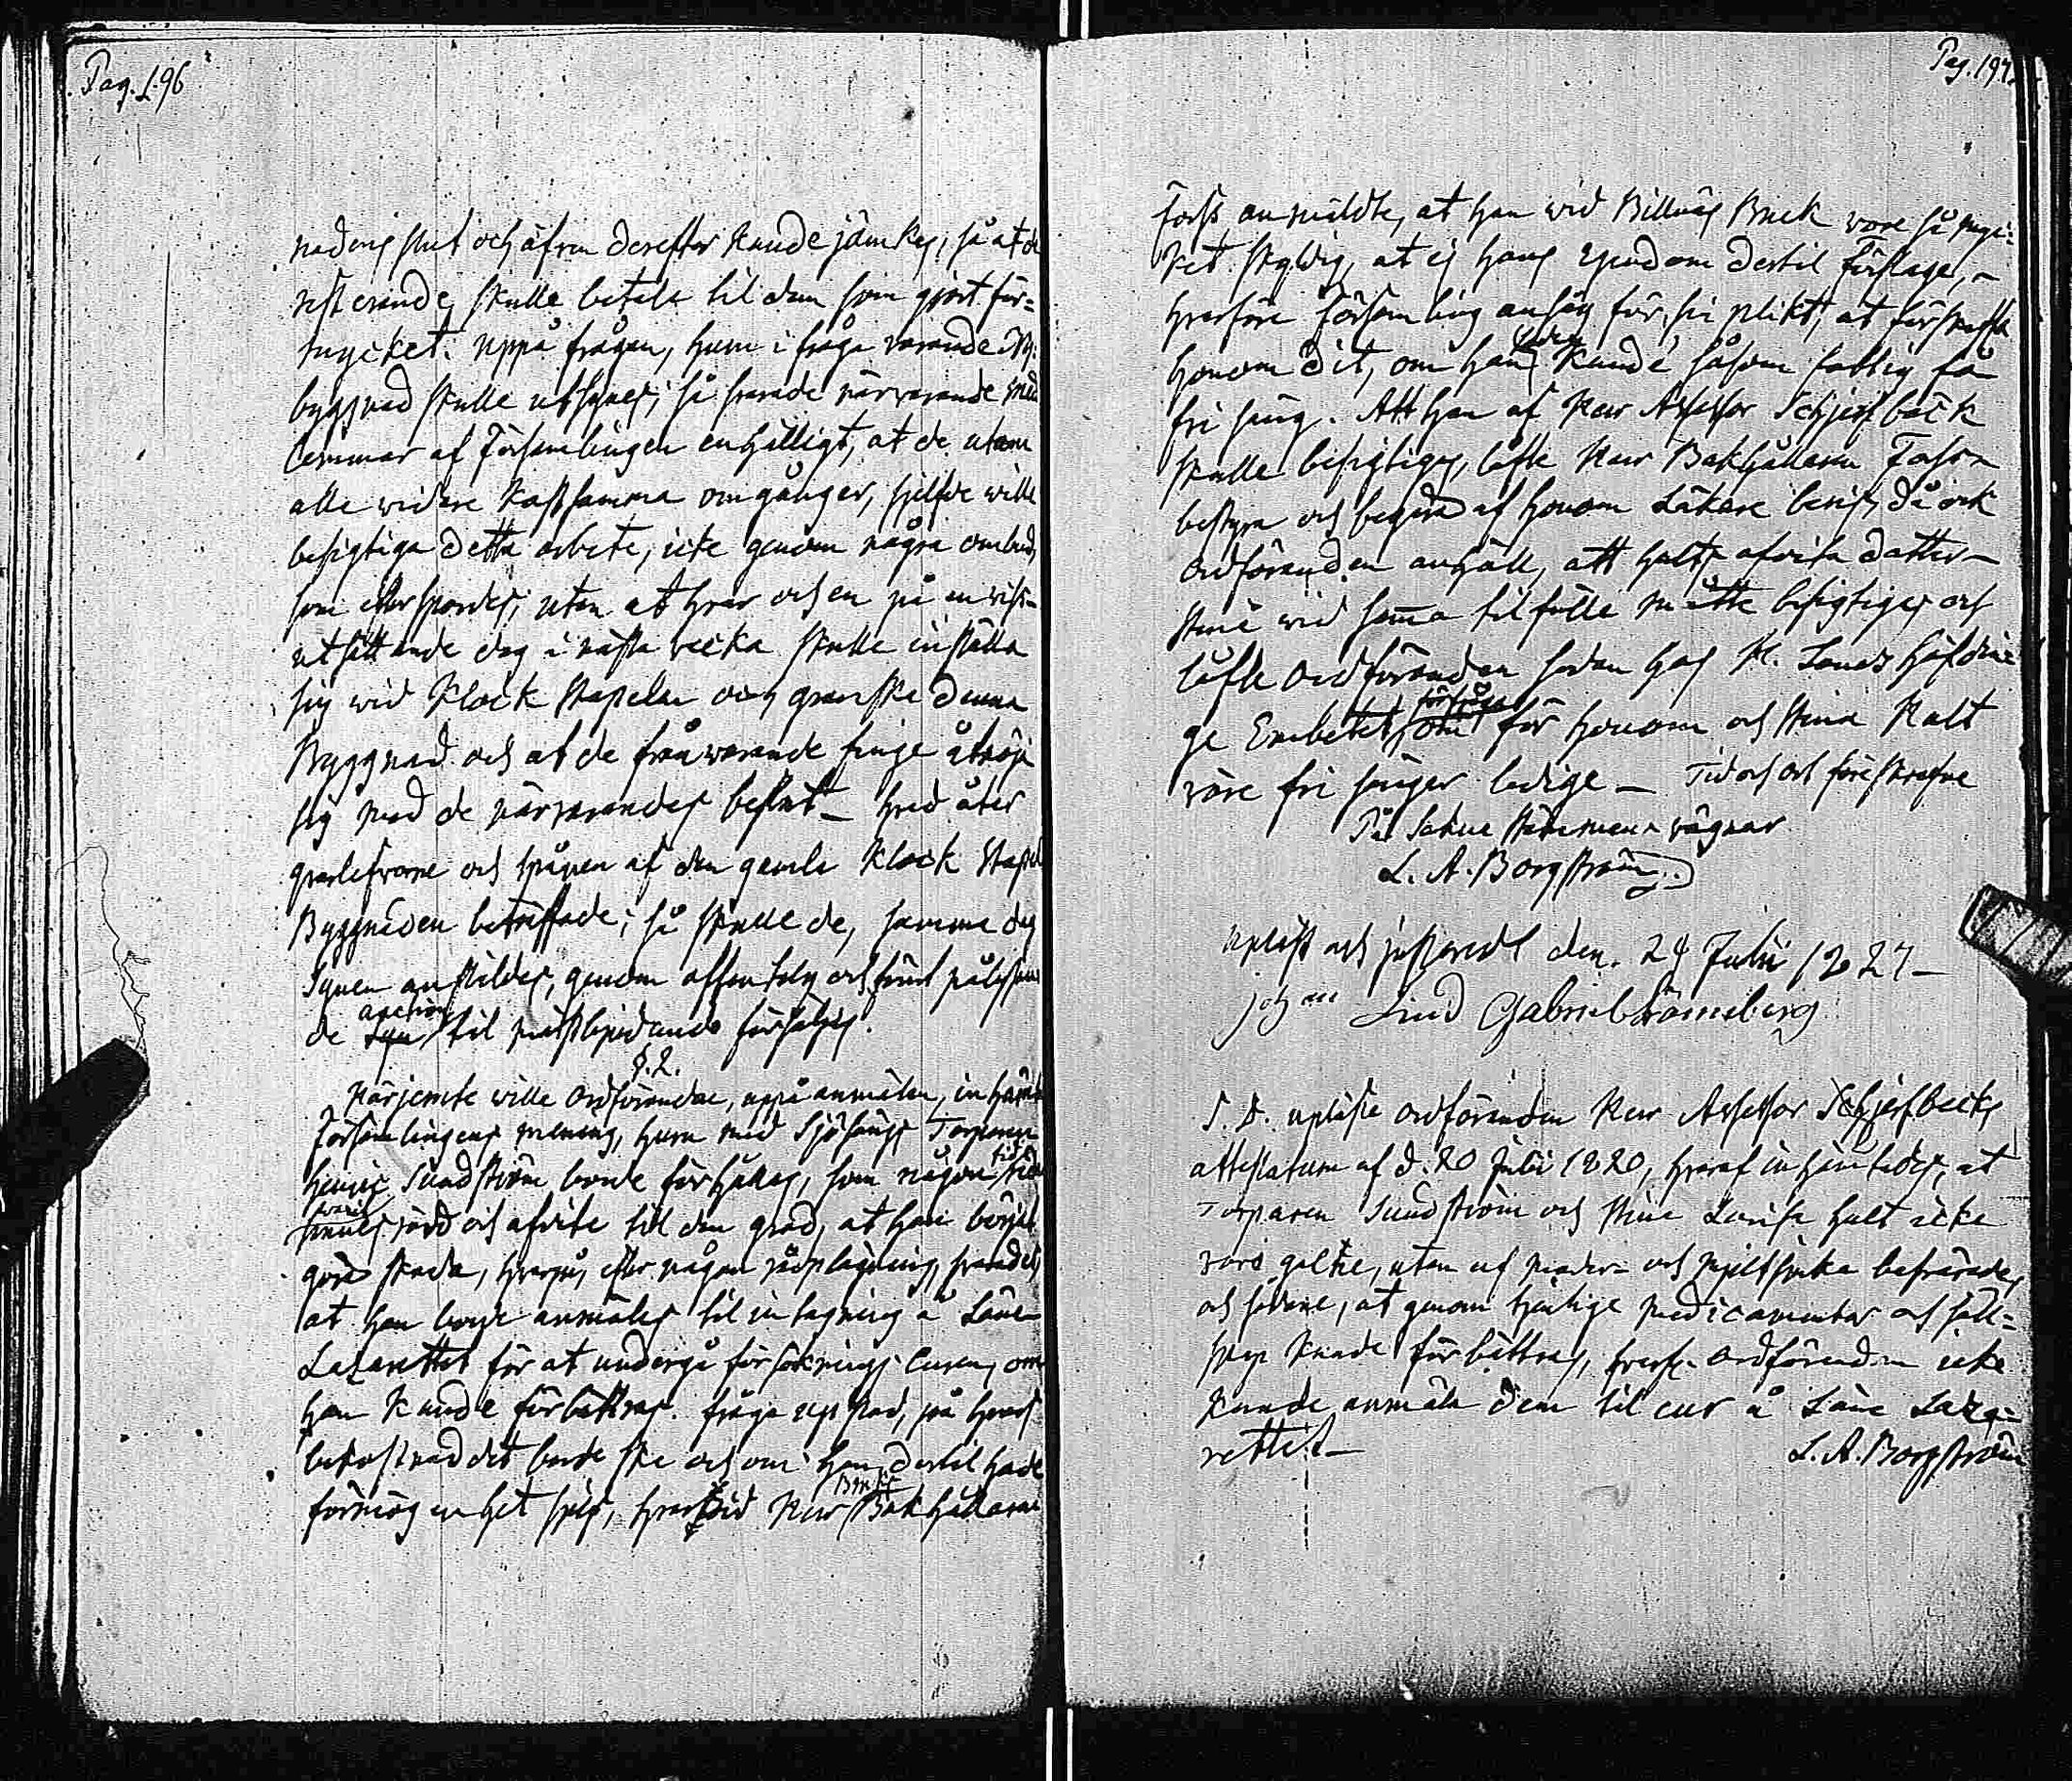 Pag. 196
nadens slut och äfven derefter kunde jämkas, så at de
resterande skulle betala til dem som gjort för-
mycket. Uppå frågan, huru i fråga varande Ny-
byggnad skulle utsynas; så svarade närvarande Med-
lemmar af Församlingen enhälligt, at de utom
alla widare kostsamma omgångar, sjelfve wille
besigtiga detta arbete, icke genom några ombud,
som utan at hvar och en på en viss
utsättande dag i nästa vecka skulle inställa
sig wid Klock stapeln och granska denna
Byggnad och at de frånwarande finge åtnöja
sig med de närvarandes beslut – Hvad åter
qvarlefvorne och spånen af den gamla Klock Stapel
Byggnaden beträffade; så skulle de, samma dag
Synen anstäldes, genom offentelig och förut pålyst
de auction til mästbjudande försäljas.
§. 2.
Härjemte wille Ordföranden, uppå anmälan, inhämta
Församlingens mening, huru med Sjösängs Torparen
Henric Sundström borde förhållas, som någon tid
varit sinnes rörd och afvita till den grad, at han börjat
göra skada, hvarpå, efter någon rådplägning, svarades,
at han borde anmälas til intagning å Läne
Lazarettet för at undergå försöknings Curen, om
han kunde förbättras. fråga upstod, på hvars
bekostnad det borde ske och om han dertil hade
förmögenhet sjelf, hvarvid Herr Bruks Bokhållaren
Pag. 197.
Forss anmälde, at han wid Billnäs Bruk vore så myc-
ket skyldig, at ej hans egendom dertil förslage, –
hvarföre Församling ansåg för sin plikt, at förskaffa
honom dit, om han kunde såsom fattig få
fri säng. Att han af Herr Assessor Schjerfbeck
skulle besigtigas, låfte Herr Bokhållaren Forss
bestyra och begära af honom Läkare bevis, då ock
Ordföranden anhöll, att Halts afvita dotter
Stina wid samma tilfälle måtte besigtigas och
låfte Ordföranden sedan hos K. Lands Höfdin-
ge Embetet om för honom och Stina Halt
vore fri sängar ledige – Tid och ort föreskrefne
På Sockne Stämmans vägnar
L. A. Borgström
Upläst och justeradt den 29 Julii 1827 –
Johan Lind Gabriel Strömsberg
S. D. upläste Ordföranden Herr Assessor Schjerfbecks
attestatum af d. 20 Julii 1820, hvaraf inhämtades, at
Torparen Sundström och Stina Lovisa Halt icke
voro galne, utan af moder- och mjeltsjuka besvärade,
och sådane, at genom tjenliga medicamenter och säll-
skap kunde förbättras, Ordföranden icke
kunde anmäla dem til cur å Läne Laza-
rettet –
L. A. Borgström